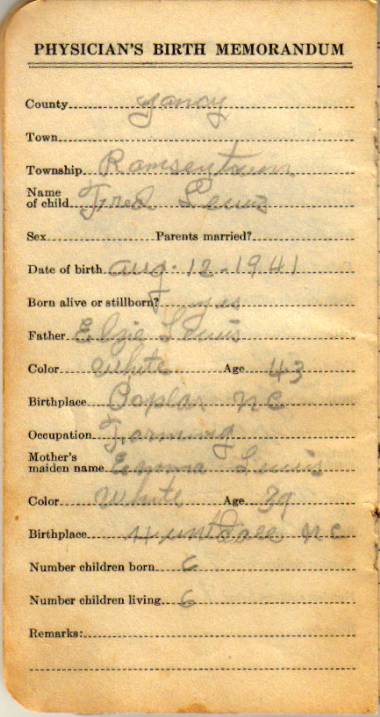 PHYSICIAN'S BIRTH MEMORANDUM
County Yancy
Town
Township Ramseytown
Name
of child Fred Lewis
Sex Parents married?
Date of birth Aug. 12. 1941
Born alive or stillborn? yes
Father Elzie Lewis
Color White Age 43
Birthplace Poplar NC
Occupation Farming
Mother's
maiden name Emma Lewis
Color White Age 39
Birthplace NC
Number children born 6
Number children living 6
Remarks: